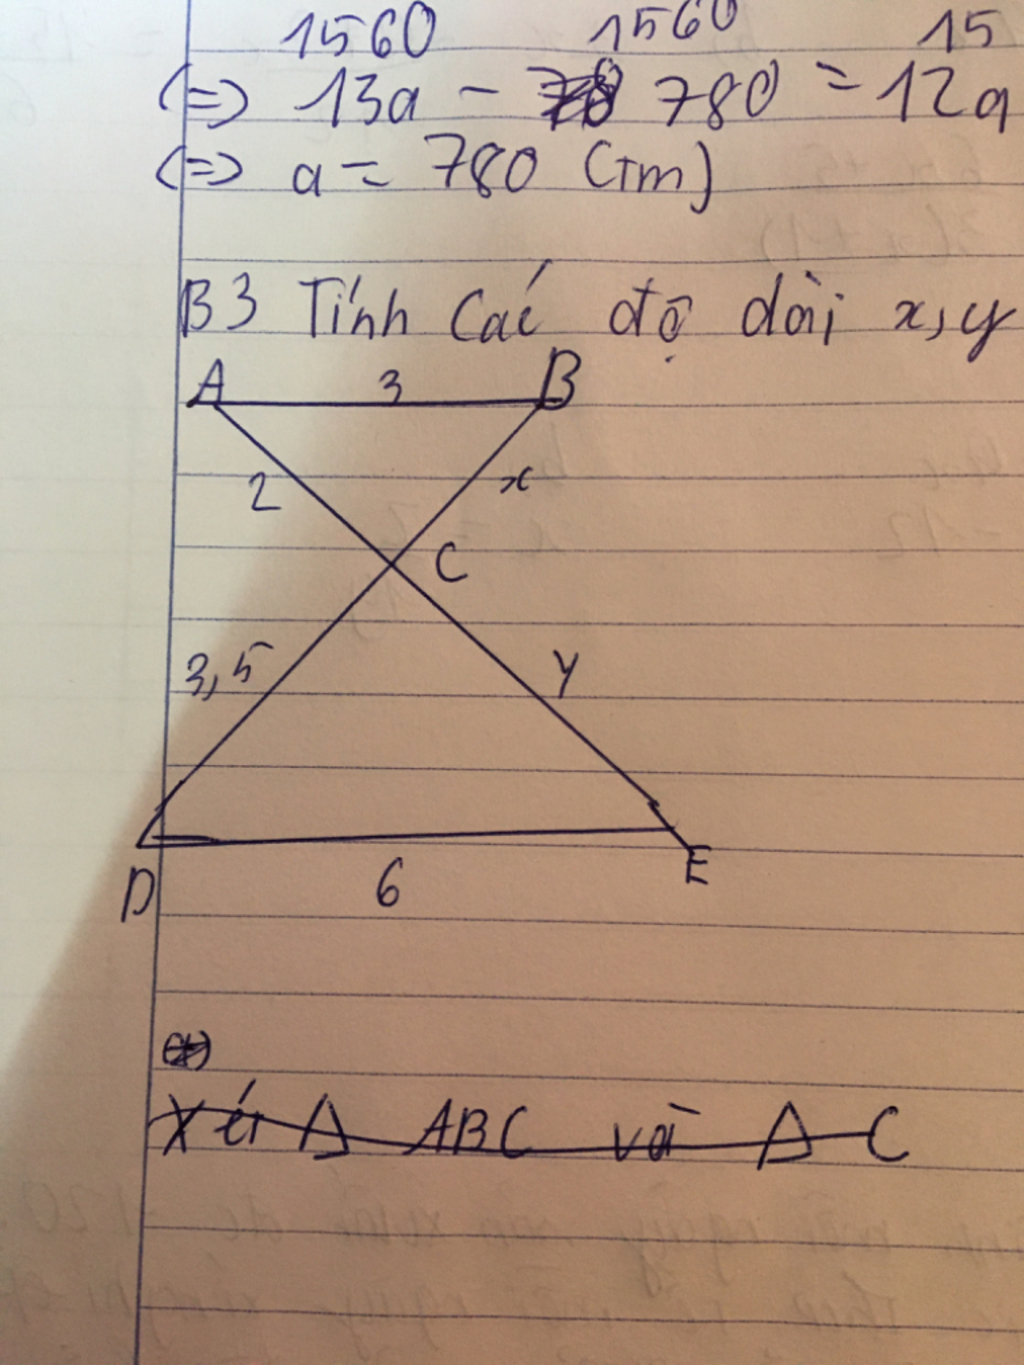 1560 1560 15
(=) 13a - 780 = 12a
(=) a = 780 (Tm)
B3 Tính Các độ dài x, y
A 3 B
2 x
C
3,5 y
D 6 E
Xét Δ ABC và Δ C